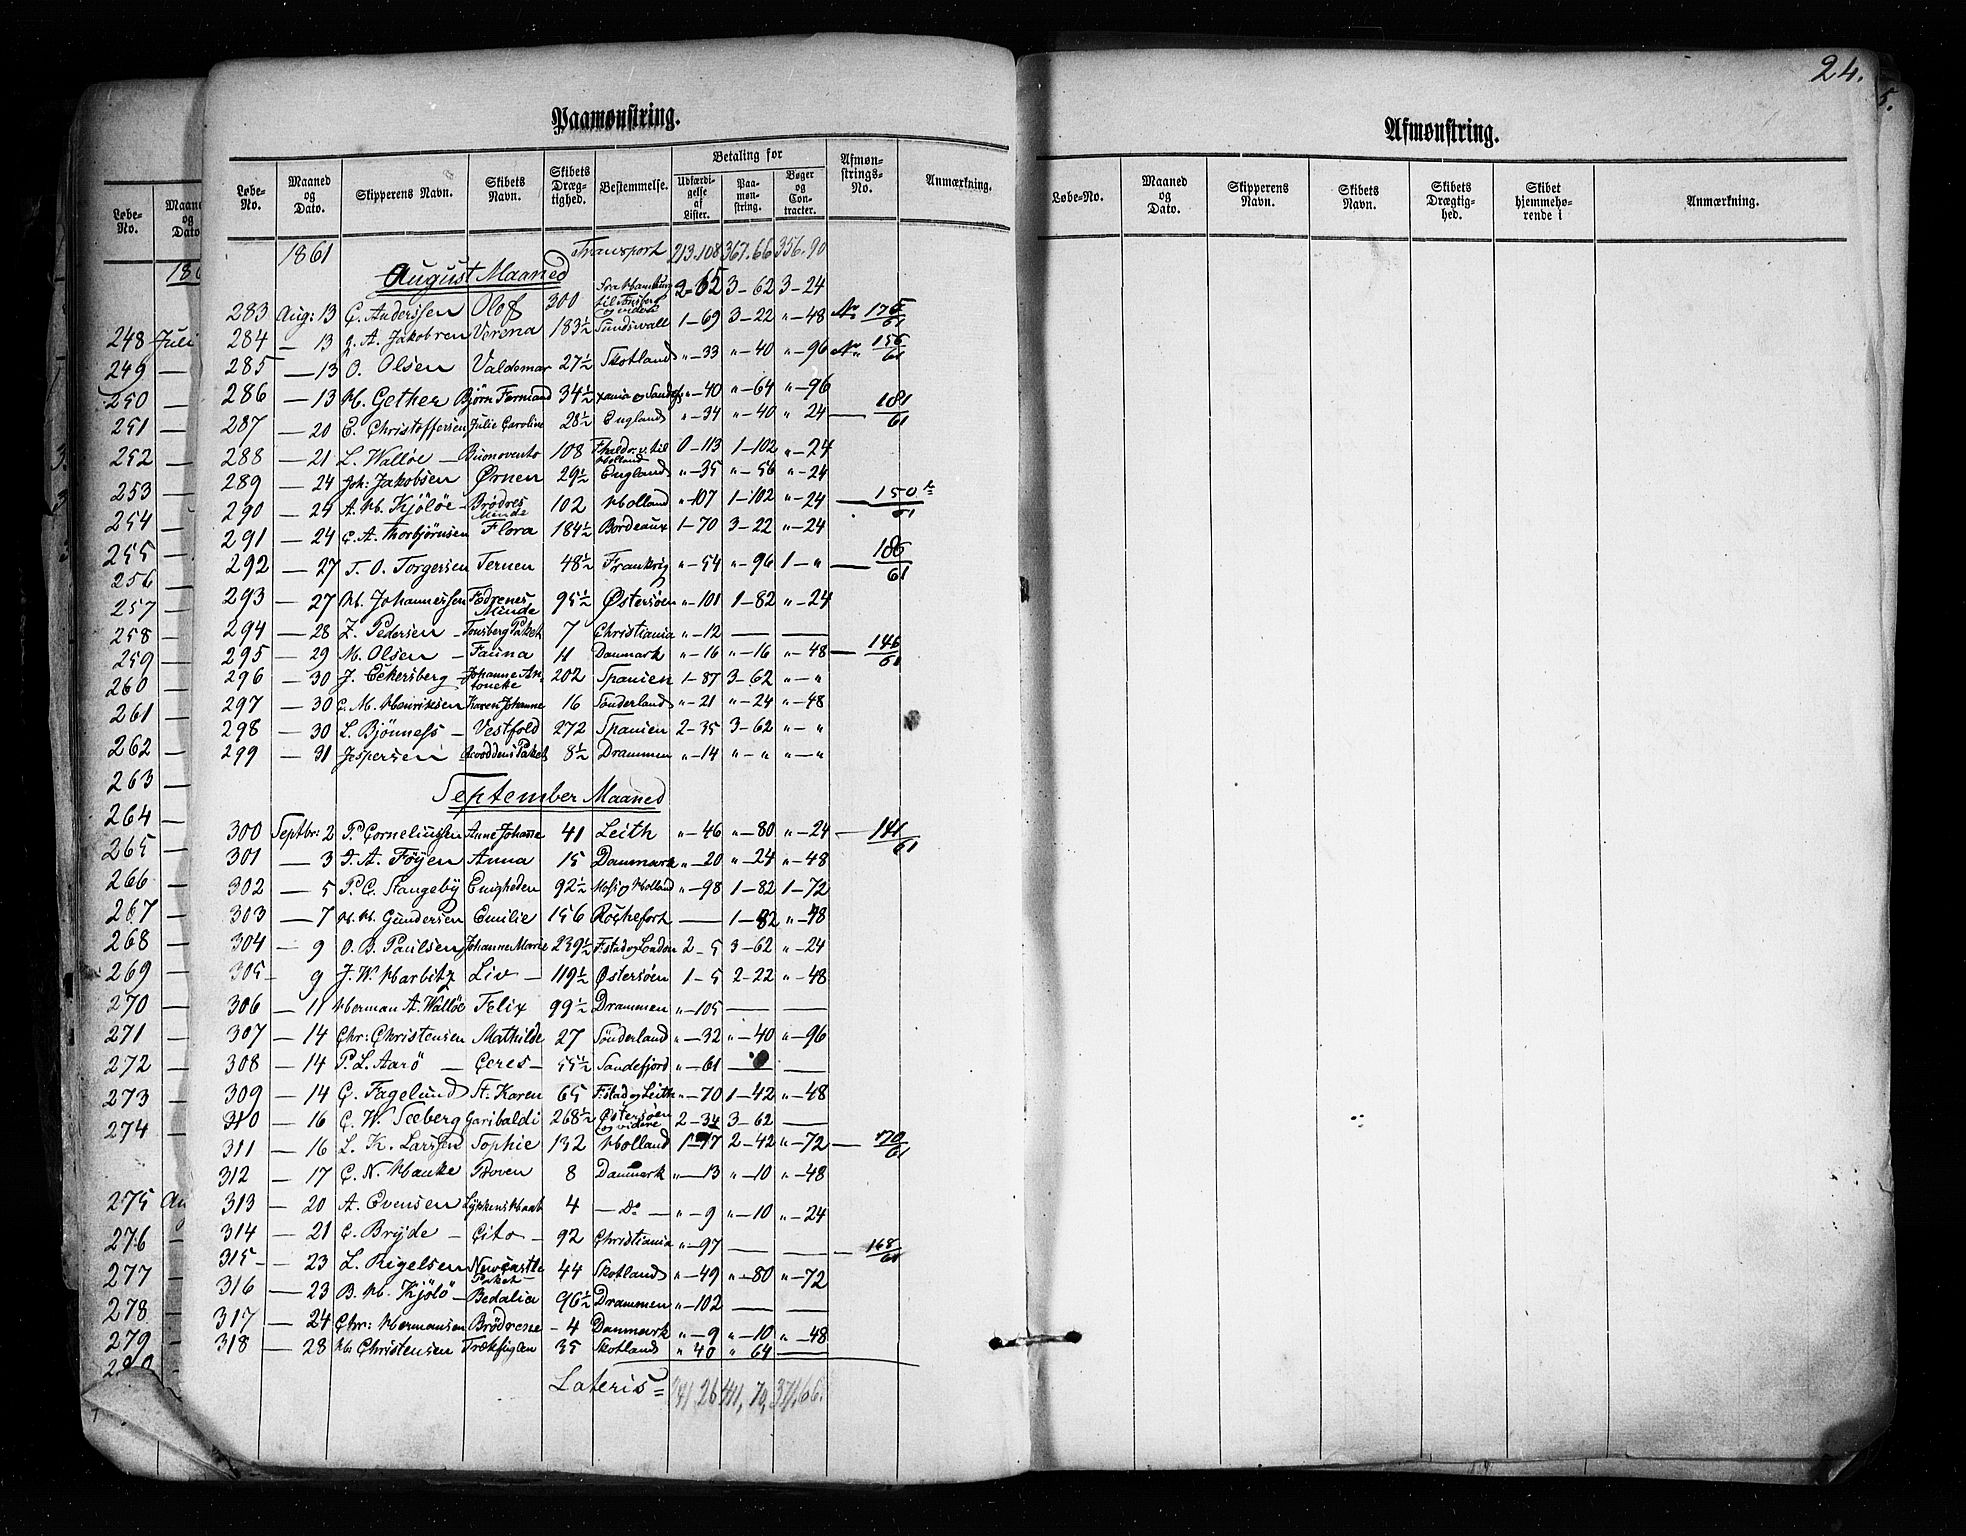 Paamønstring.
Løbe-No. | Maaned og Dato. | Skipperens Navn. | Skibets Navn. | Skibets Dræg-tighed. | Bestemmelse. | Betaling for | Udfærdi-gelse af Lister. | Paa-møn-string. | Bøger og Con-tracter. | Afmøn-strings-No. | Anmærkning.
1861 Transport 213.108 367.66 356.90
August Maaned
283 Aug: 13 C. Anderssen Olof 300 Fra Hamburg til Tønsberg og videre 2-65 3-62 3-24 No 175/61
284 — 13 J. A. Jakobsen Verena 183½ Sundsvall 1-69 3-22 "-48
285 — 13 O. Olsen Valdemar 27½ Skotland "-33 "-40 "-96 No 155/61
286 — 13 H. Gether Bjørn Fermand 34½ "-40 "-64 "-96
287 — 20 E. Christoffersen Julie Caroline 28½ England "-34 "-40 " 24 — 181/61
288 — 21 L. Walløe — Buonovento 108 til Holland 0-113 1-102 "-24
289 — 24 Joh: Jakobsen Ørnen 29½ England "-35 "-56 "-24
290 — 24 A. H. Kjöløe Brödres Minde 102 Holland "-107 1-102 "-24 — 150/61
291 — 24 C. A. Thorbjørnsen Flora 184½ Bordeaux 1-70 3-22 "-24
292 — 27 T. O. Torgersen Ternen 48½ Frankrig "-54 "-96 1-" — 186/61
293 — 27 H. Johannessen Fædrenes Minde 95½ Østersøen "-101 1-82 "-24
294 — 28 Z. Pedersen — Tønsberg Paket 7 Christiania "-12 — —
295 — 29 M. Olsen — Fauna 11 Danmark "-16 "-16 "-48 — 146/61
296 — 30 J. Eckersberg — Johanne Antonette 202 Spanien 1-87 3-62 "-"
297 — 30 C. M. Henriksen Karen Johanne 16 Sønderland "-21 "-24 "-48
298 — 30 L. Bjönness — Vestfold 272 Spanien 2-35 3-62 "-"
299 — 31 Jespersen Paket 8½ Drammen "-14 "-" "-"
September Maaned
300 Septbr: 2 P. Corneliussen Anne Johanne 41 Leith "-46 "-80 "-24 — 141/61
301 — 3 A. Föyen Anna 15 Danmark "-20 "-24 "-48
302 — 5 P. C. Stangeby Enigheden 92½ Moss og Holland "-98 1-82 1-72
303 — 7 H. H. Gundersen Emilie 156 Rochefort — 1-82 "-48
304 — 9 O. B. Paulsen Johanne Marie 239½ F.stad og London 2-5 3-62 "-24
305 — 9 J. W. Harbitz Liv — 119½ Østersøen 1-5 2-22 "-48
306 — 11 Herman A. Walløe Felix 99½ Drammen "-105 — —
307 — 14 Chr: Christensen Mathilde 27 Sönderland "-32 "-40 "-96
308 — 14 P. L. Aarö — Ceres — 55½ Sandefjord "-61 — —
309 — 14 C. Fagelund St. Karen 65 F.stad og Leith "-70 1-42 "-48
310 — 16 C. W. Seeberg Garibaldi 268½ Østersøen og videre 2-34 3-62 —
311 — 16 L. K. Larssen Sophie 132 Holland 1-17 2-42 "-72 — 170/61
312 — 17 C. N. Hauke Proven 8 Danmark "-13 "-10 "-48
313 — 20 A. Evensen Lykkens Haab 4 — Do — "-9 "-10 "-24
314 — 21 C. Bryde — Cito — 92 Christiania "-97 — — — 168/61
315 — 23 L. Rigelsen Newcastle Paket — 44 Skotland "-49 "-80 "-72
316 — 23 B. H. Kjölö — Bedalia 96½ Drammen "-102 — —
317 — 24 Chr: Hermansen Brödrene — 4 Danmark "-9 "-10 "-48
318 — 28 H. Christensen Trækfuglen 35 Skotland " 40 " 64 —
Lateris = 241,26 411,79, 371,66.
Løbe-No. | Maaned og Dato
248 Juli
249 —
250 —
251 —
252 —
253 —
254 —
255 —
256 —
257 —
258 —
259 —
260 —
261 —
262 —
263 —
264 —
265 —
266 —
267 —
268 —
269 —
270 —
271 —
272 —
273 —
274 —
275
276 —
277 —
278 —
279 —
280
24.
5.
Afmønstring.
Løbe-No. | Maaned og Dato. | Skipperens Navn. | Skibets Navn. | Skibets Drægtig-hed. | Skibet hjemmehø-rende i | Anmærkning.